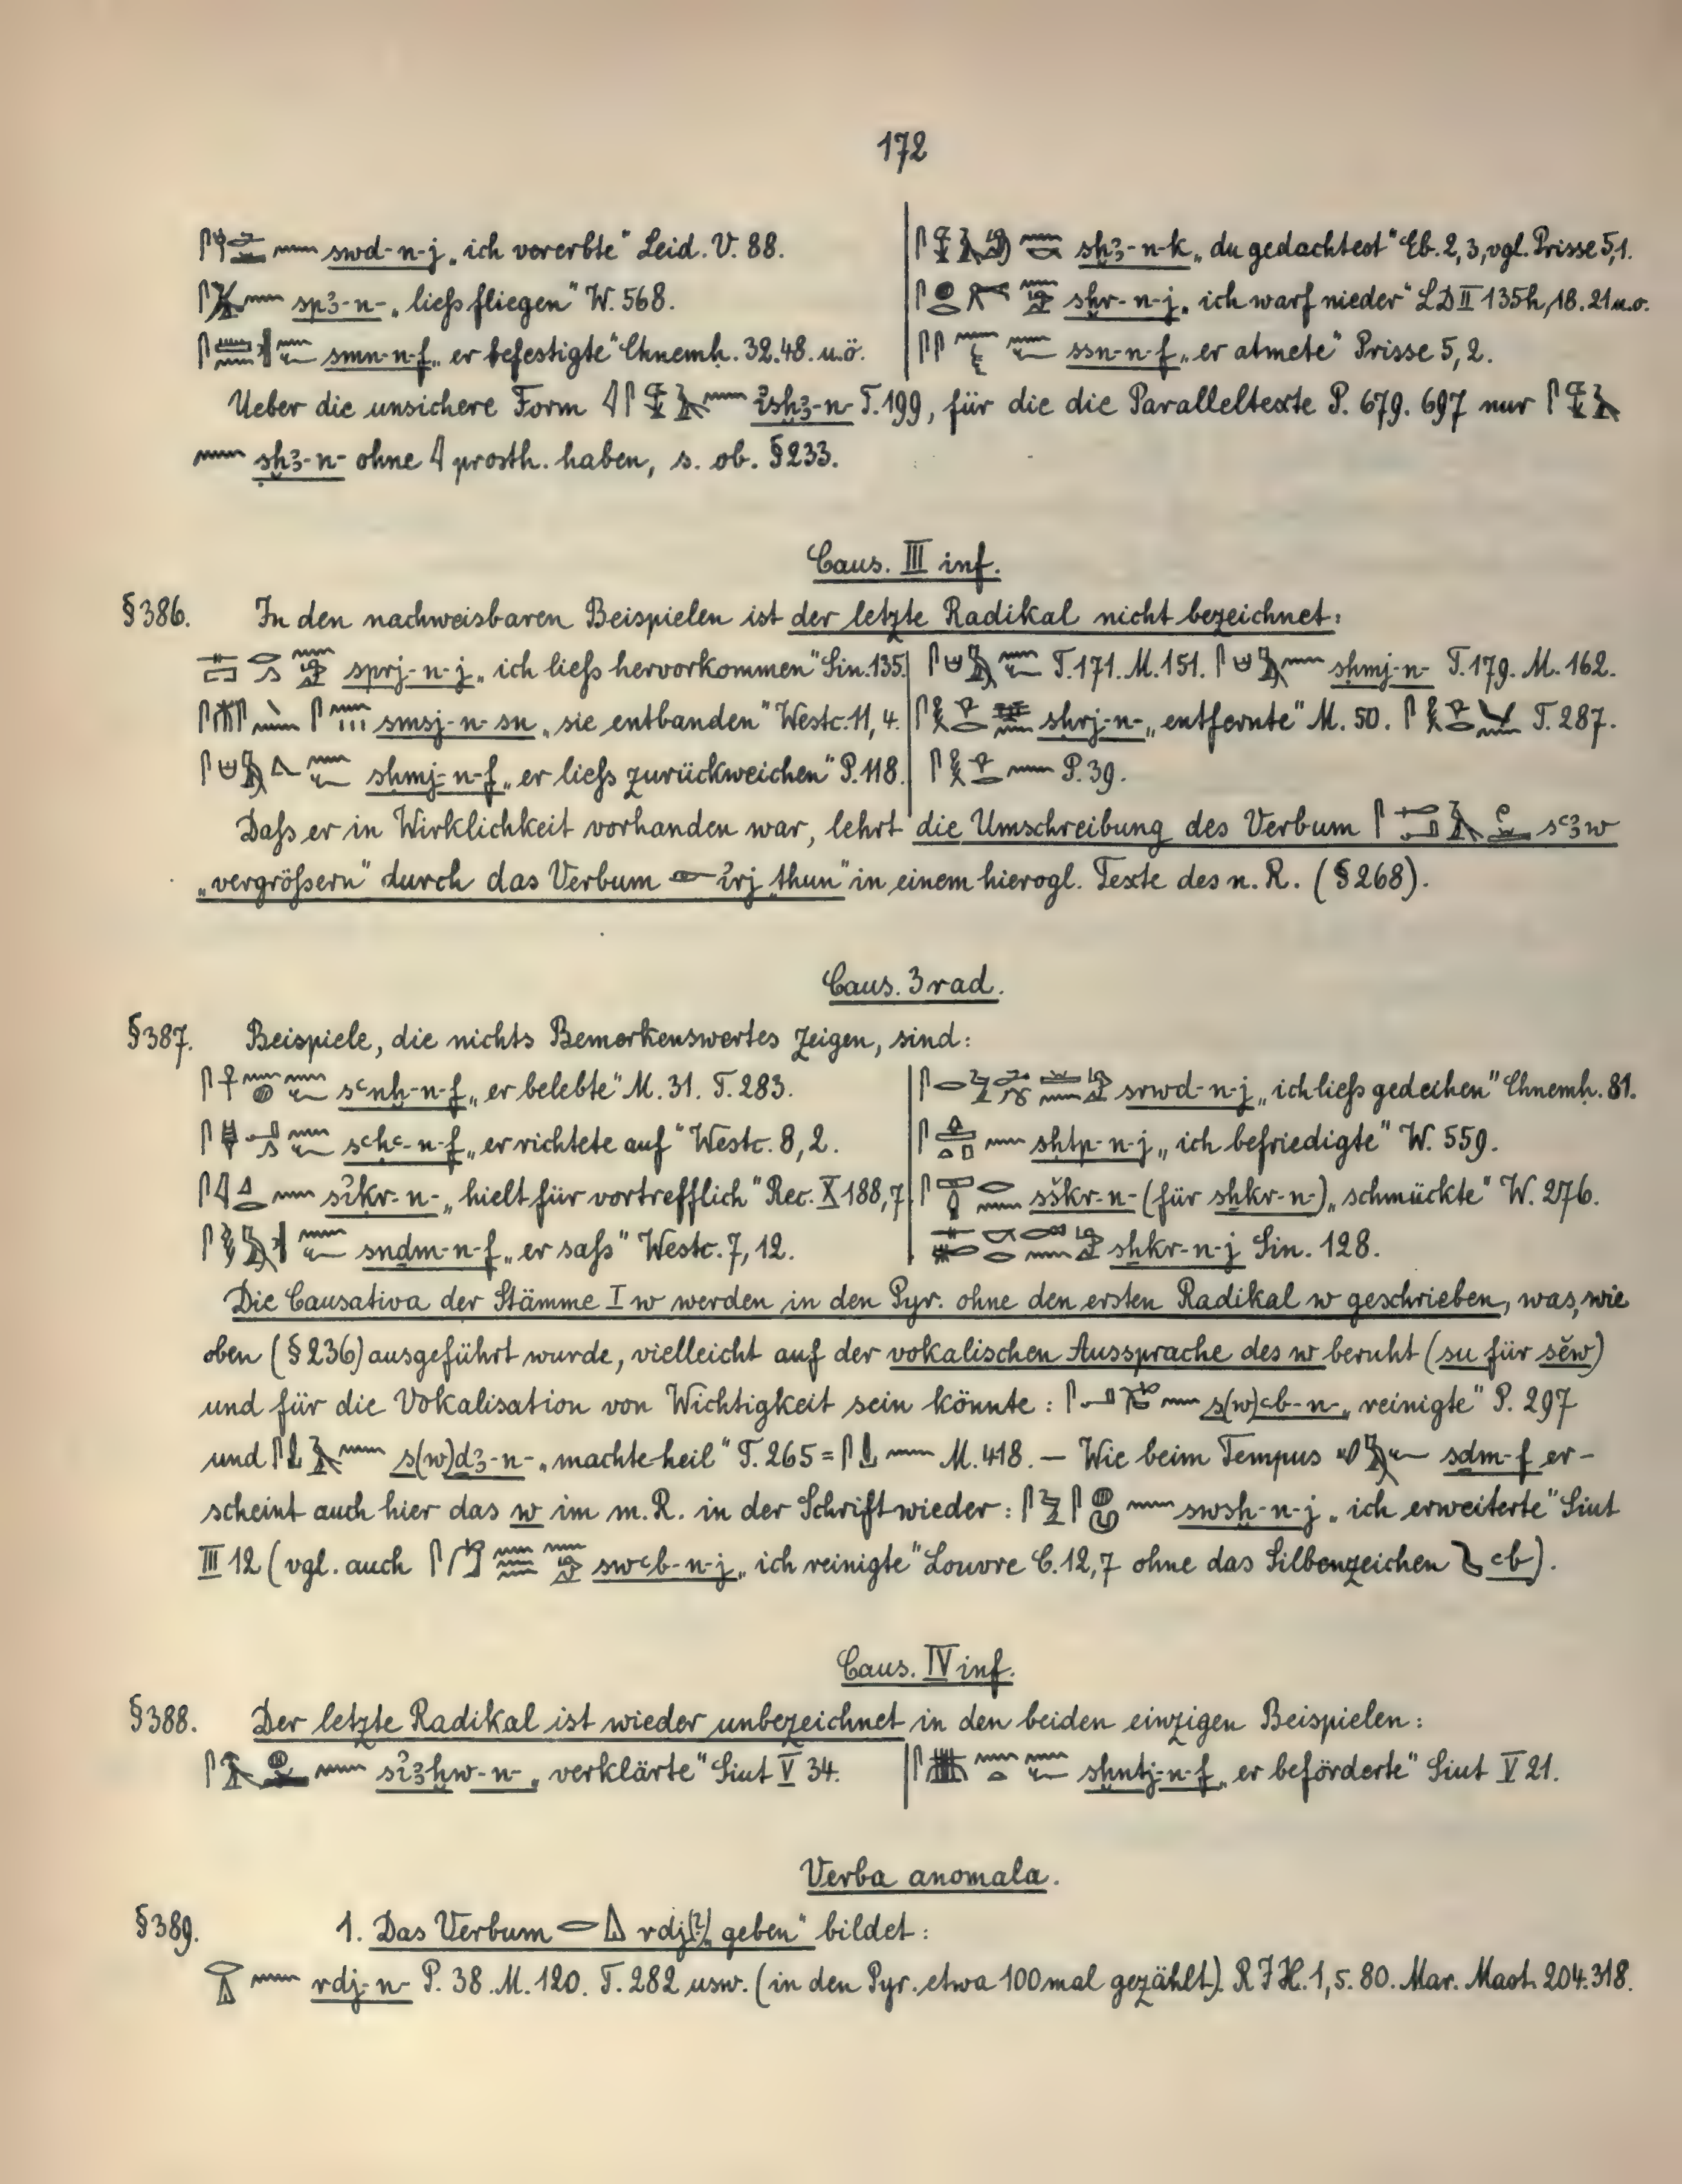 172
swd-n-j „ich vererbte“ Leid. V. 88.
sp3-n- „ließ fliegen“ W. 568.
smn-n-f „er befestigte“ Chnemḥ. 32.48. u.ö.
sḫ3-n-k „du gedachtest“ Eb. 2,3, vgl. Prisse 5,1.
sḫr-n-j „ich warf nieder“ LD II 135h, 18. 21 u.o.
ssn-n-f „er atmete“ Prisse 5,2.
Ueber die unsichere Form 𓇋𓋴 ἰsḫ3-n- T. 199, für die die Paralleltexte P. 679. 697 nur
𓈖 sḫ3-n- ohne 𓇋 prosth. haben, s. ob. §233.
Caus. III inf.
§386. In den nachweisbaren Beispielen ist der letzte Radikal nicht bezeichnet:
sprj-n-j „ich ließ hervorkommen“ Sin. 135.
smsj-n-sn „sie entbanden“ Westc. 11, 4.
sḥmj-n-f „er ließ zurückweichen“ P. 118.
T. 171. M. 151. sḥmj-n- T. 179. M. 162.
sḥrj-n- „entfernte“ M. 50. T. 287.
P. 39.
Daß er in Wirklichkeit vorhanden war, lehrt die Umschreibung des Verbum sꜥ3w
„vergrößern“ durch das Verbum 𓁹 ἰrj „thun“ in einem hierogl. Texte des n. R. (§268).
Caus. 3rad.
§387. Beispiele, die nichts Bemerkenswertes zeigen, sind:
sꜥnḫ-n-f „er belebte“ M. 31. T. 283.
sꜥḥꜥ-n-f „er richtete auf“ Westc. 8, 2.
sἰḳr-n- „hielt für vortrefflich“ Rec. X 188,7
snḏm-n-f „er saß“ Westc. 7, 12.
srwd-n-j „ich ließ gedeihen“ Chnemḥ. 81.
sḥtp-n-j „ich befriedigte“ W. 559.
sškr-n- (für sẖkr-n-) „schmückte“ W. 276.
sẖkr-n-j Sin. 128.
Die Causativa der Stämme I w werden in den Pyr. ohne den ersten Radikal w geschrieben, was, wie
oben (§236) ausgeführt wurde, vielleicht auf der vokalischen Aussprache des w beruht (su für sĕw)
und für die Vokalisation von Wichtigkeit sein könnte: s(w)ꜥb-n- „reinigte“ P. 297
und s(w)ḏ3-n- „machte heil“ T. 265 = M. 418. — Wie beim Tempus sḏm-f er-
scheint auch hier das w im m. R. in der Schrift wieder: swsḫ-n-j „ich erweiterte“ Siut
III 12 (vgl. auch swꜥb-n-j „ich reinigte“ Louvre C. 12,7 ohne das Silbenzeichen ꜥb).
Caus. IV inf.
§388. Der letzte Radikal ist wieder unbezeichnet in den beiden einzigen Beispielen:
sἰ3ḫw-n- „verklärte“ Siut V 34.
sḫntj-n-f „er beförderte“ Siut V 21.
Verba anomala.
§389. 1. Das Verbum rdj(?) „geben“ bildet:
rdj-n- P. 38. M. 120. T. 282 usw. (in den Pyr. etwa 100 mal gezählt). RIH. 1, 5. 80. Mar. Mast. 204. 318.